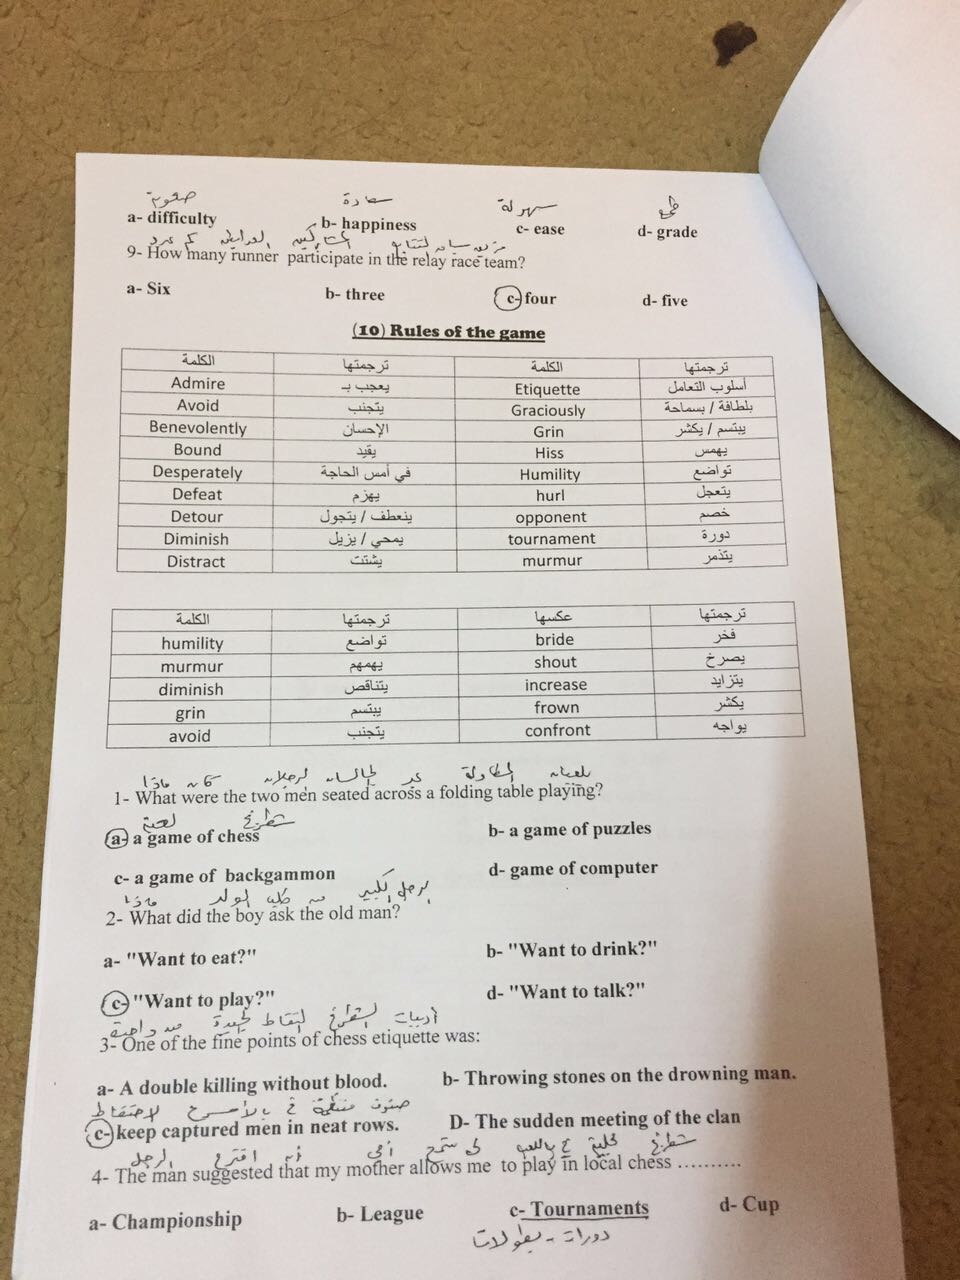 صعوبة سعادة سهولة
a- difficulty b- happiness c- ease d- grade
9- How many runner participate in the relay race team?
a- Six b- three c- four d- five
(10) Rules of the game
الكلمة ترجمتها الكلمة ترجمتها
Admire يعجب بـ Etiquette أسلوب التعامل
Avoid يتجنب Graciously بلطافة / بسماحة
Benevolently الإحسان Grin يبتسم / يكشر
Bound يقيد Hiss يهمس
Desperately في أمس الحاجة Humility تواضع
Defeat يهزم hurl يتعجل
Detour ينعطف / يتجول opponent خصم
Diminish يمحي / يزيل tournament دورة
Distract يشتت murmur يتذمر
الكلمة ترجمتها عكسها ترجمتها
humility تواضع bride فخر
murmur يهمهم shout يصرخ
diminish يتناقص increase يتزايد
grin يبتسم frown يكشر
avoid يتجنب confront يواجه
ماذا كان الطاولة يلعبان
1- What were the two men seated across a folding table playing?
لعبة شطرنج
a- a game of chess b- a game of puzzles
c- a game of backgammon d- game of computer
ماذا طلب الولد من الرجل الكبير
2- What did the boy ask the old man?
a- "Want to eat?" b- "Want to drink?"
c- "Want to play?" d- "Want to talk?"
واحدة من النقاط الجيدة الشطرنج
3- One of the fine points of chess etiquette was:
a- A double killing without blood. b- Throwing stones on the drowning man.
في صفوف منتظمة
c- keep captured men in neat rows. D- The sudden meeting of the clan
الرجل اقترح أن أمي شطرنج
4- The man suggested that my mother allows me to play in local chess ..........
a- Championship b- League c- Tournaments d- Cup
دورات - بطولات